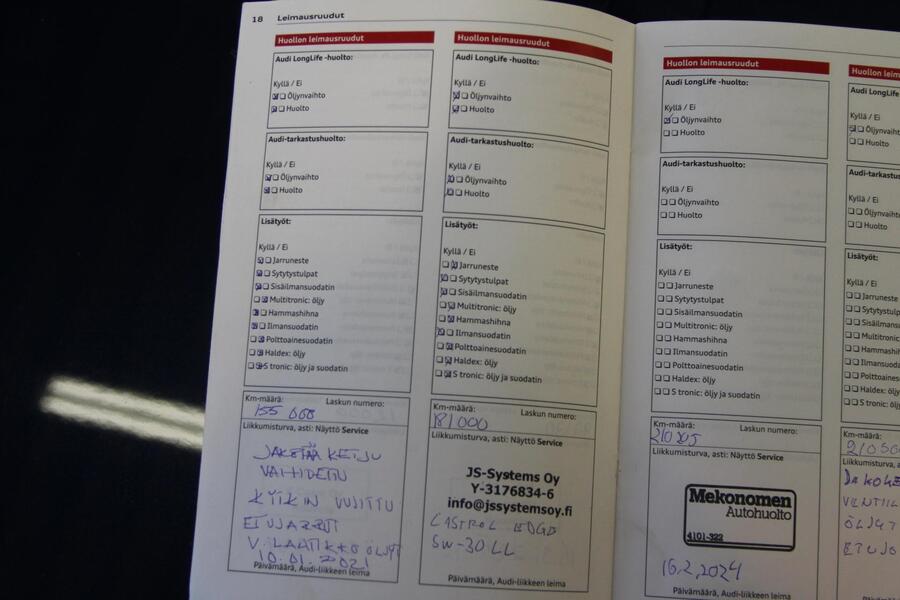 18 Leimausruudut
Huollon leimausruudut
Audi LongLife -huolto:
Kyllä / Ei
Öljynvaihto
Huolto
Audi-tarkastushuolto:
Kyllä / Ei
Öljynvaihto
Huolto
Lisätyöt:
Kyllä / Ei
Jarruneste
Sytytystulpat
Sisäilmansuodatin
Multitronic: öljy
Hammashihna
Ilmansuodatin
Polttoainesuodatin
Haldex: öljy
S tronic: öljy ja suodatin
Km-määrä: Laskun numero:
155 000
Liikkumisturva, asti: Näyttö Service
KETJU
VAIHDETTU
ETUJARRUT
10.01.2021
Päivämäärä, Audi-liikkeen leima
Huollon leimausruudut
Audi LongLife -huolto:
Kyllä / Ei
Öljynvaihto
Huolto
Audi-tarkastushuolto:
Kyllä / Ei
Öljynvaihto
Huolto
Lisätyöt:
Kyllä / Ei
Jarruneste
Sytytystulpat
Sisäilmansuodatin
Multitronic: öljy
Hammashihna
Ilmansuodatin
Polttoainesuodatin
Haldex: öljy
S tronic: öljy ja suodatin
Km-määrä: Laskun numero:
181000
Liikkumisturva, asti: Näyttö Service
JS-Systems Oy
Y-3176834-6
info@jssystemsoy.fi
CASTROL EDGE
5W-30 LL
Päivämäärä, Audi-liikkeen leima
Huollon leimausruudut
Audi LongLife -huolto:
Kyllä / Ei
Öljynvaihto
Huolto
Audi-tarkastushuolto:
Kyllä / Ei
Öljynvaihto
Huolto
Lisätyöt:
Kyllä / Ei
Jarruneste
Sytytystulpat
Sisäilmansuodatin
Multitronic: öljy
Hammashihna
Ilmansuodatin
Polttoainesuodatin
Haldex: öljy
S tronic: öljy ja suodatin
Km-määrä: Laskun numero:
210205
Liikkumisturva, asti: Näyttö Service
Mekonomen
Autohuolto
4101-322
16.2.2024
Päivämäärä, Audi-liikkeen leima
Huollon leim
Audi LongLife
Kyllä / Ei
Öljynvaiht
Huolto
Audi-tarkastus
Kyllä / Ei
Öljynvaiht
Huolto
Lisätyöt:
Kyllä / Ei
Jarruneste
Sytytystulp
Sisäilmans
Multitroni
Hammashi
Ilmansuod
Polttoaine
Haldex: öl
S tronic: öl
Km-määrä:
Liikkumisturva, a
Päivämäär